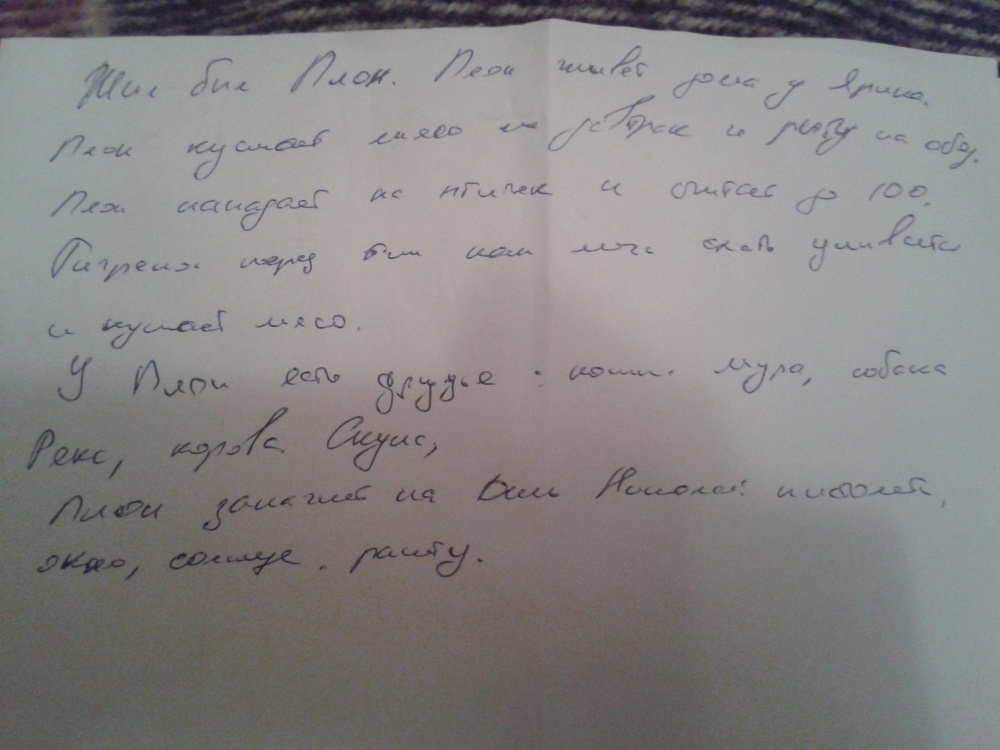 Жил был Плои. Плои живет дома у Ярика.
Плои кушает мясо на завтрак и рыбу на обед.
Плои нападает на птичек и считает до 100.
Тигренок перед тем как лечь спать умывается
и кушает мясо.
У Плои есть друзья: кошка Мура, собака
Рекс, корова
Плои на День Николая: пистолет,
окно, солнце, ракету.